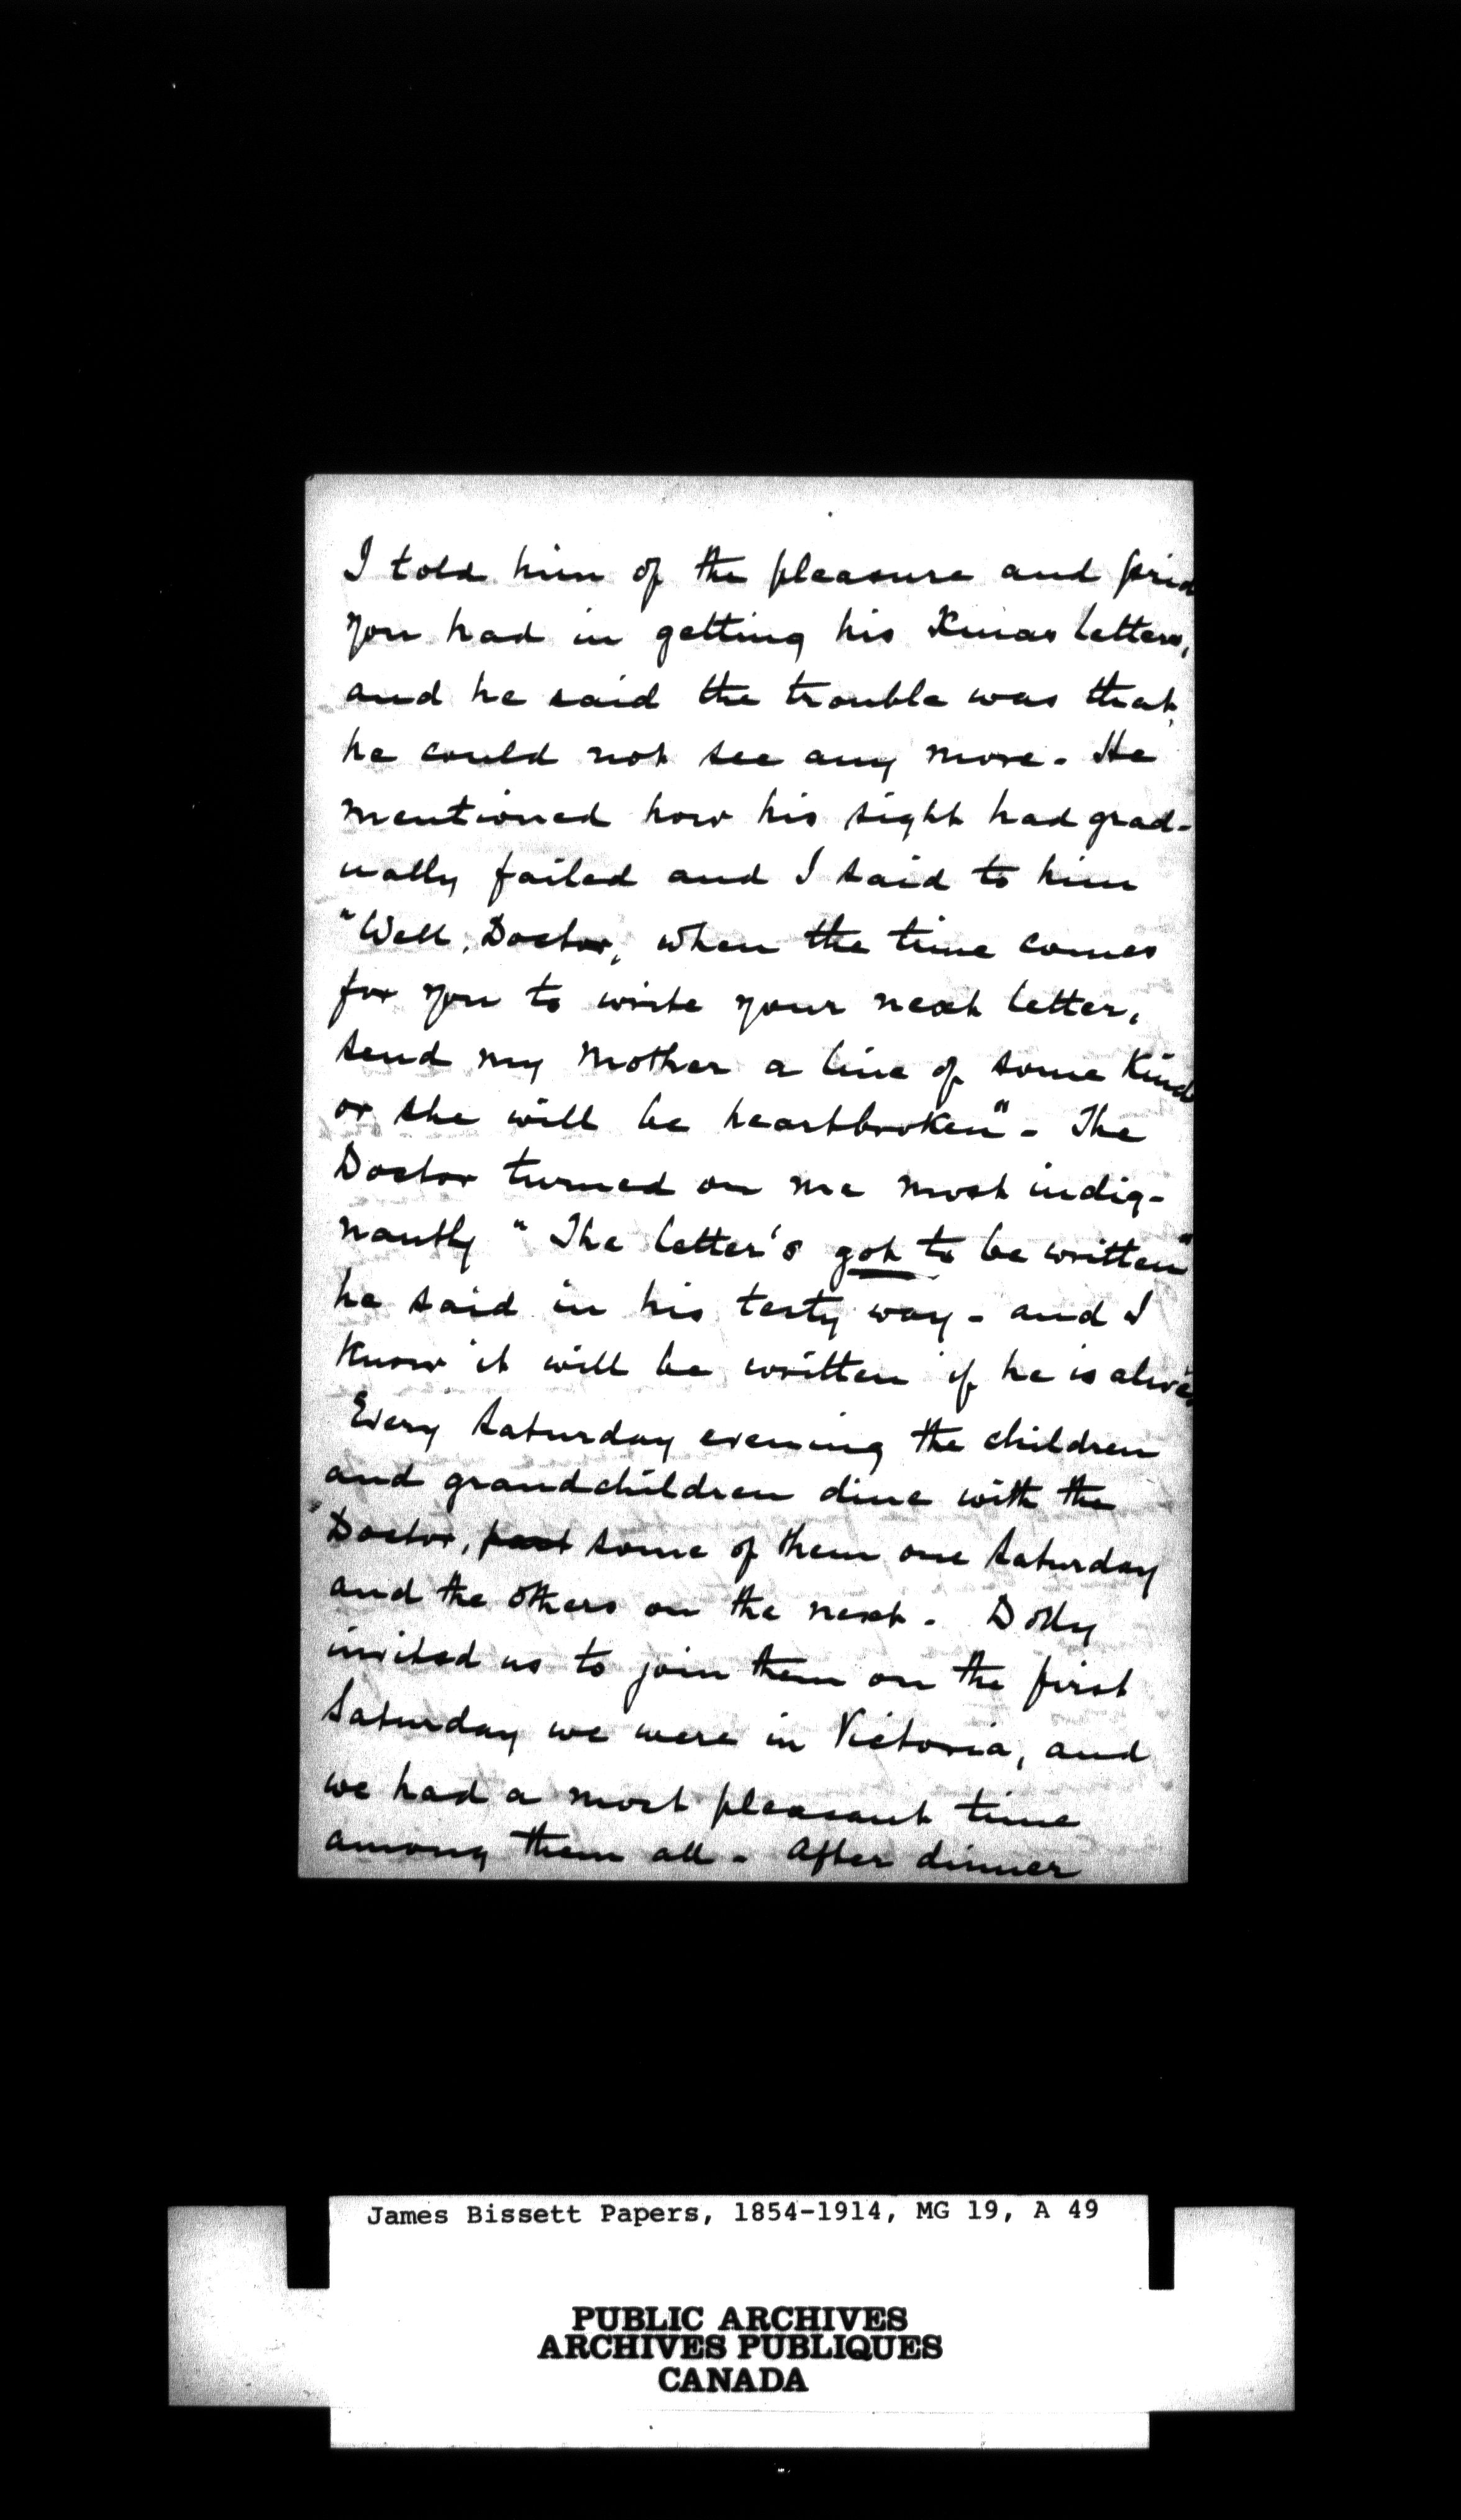 I told him of the pleasure and prid
you had in getting his Xmas letters,
and he said the trouble was that
he could not see any more. He
mentioned how his sight had grad-
ually failed and I said to him
"Well, Doctor, when the time comes
for you to write your next letter,
send my Mother a line of some kind
or she will be heartbroken" - The
Doctor turned on me most indig-
nantly "The letter's got to be written"
he said in his testy way - and I
know it will be written if he is alive
Every Saturday evening the children
and grandchildren dine with the
Doctor, some of them one Saturday
and the others on the next. Dolly
invited us to join them on the first
Saturday we were in Victoria, and
we had a most pleasant time
among them all - After dinner
James Bissett Papers, 1854-1914, MG 19, A 49
PUBLIC ARCHIVES
ARCHIVES PUBLIQUES
CANADA